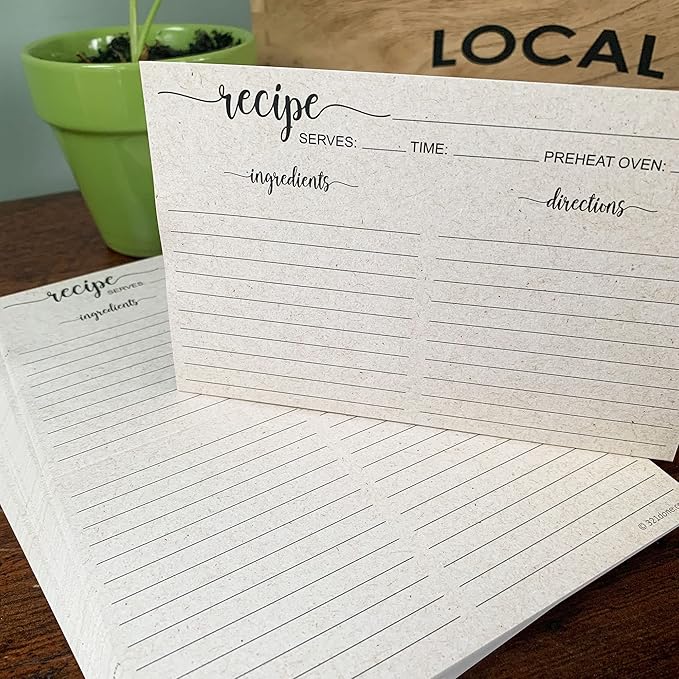 LOCAL
recipe
SERVES: TIME: PREHEAT OVEN:
ingredients directions
recipe
SERVES
ingredients
© 321done.c